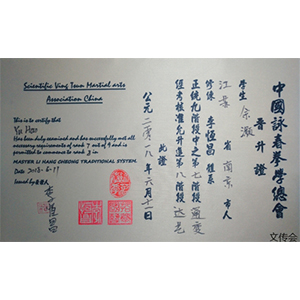 Scientific Ving Tsun Martial arts
Association China
This is to certify that
Yu Hao
Has been duly examined and has successfully met all
necessary requirements of rank 7 out of 9 and is
permitted to commence to rank 8 in
MASTER LI HANG CHEONG TRADITIONAL SYSTEM.
Date: 2018-6-11
Issued by
中國詠春拳學總會
晋升證
學生 余灝
江蘇 省 南京 市人
修煉 李恆昌 體系
正統九階段中之第七階段
經考核准允升進第八階段
此證
公元二零一八年六月十一日
文传会